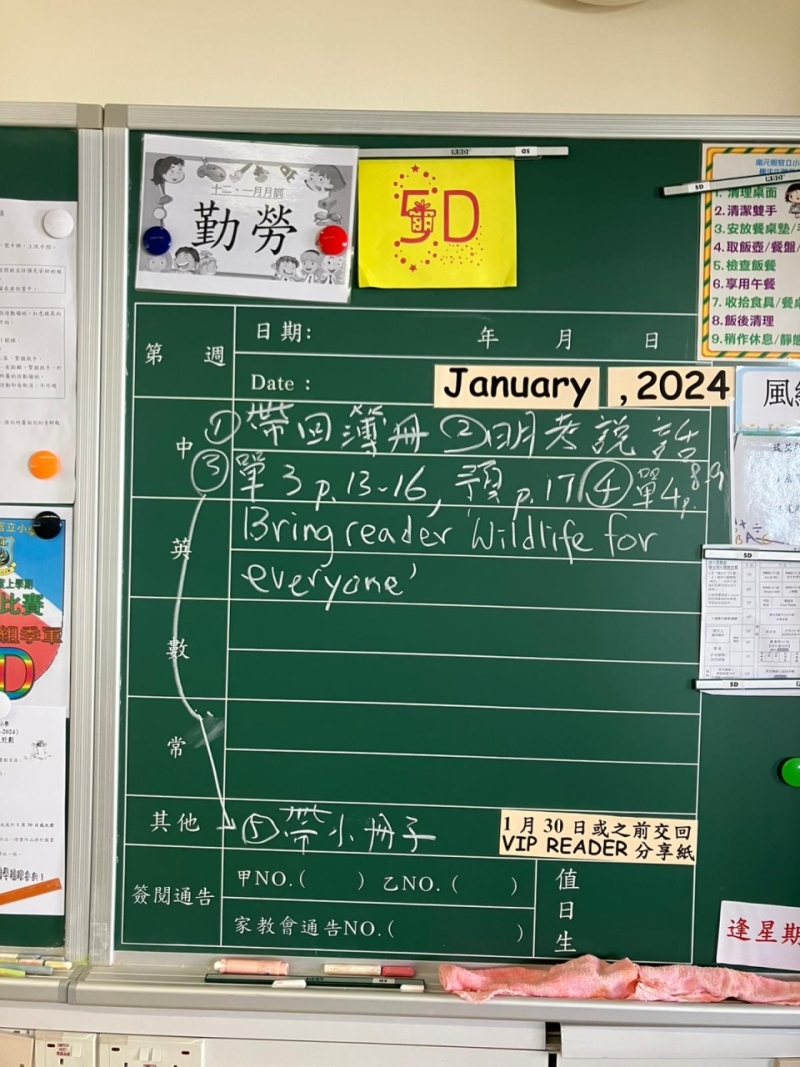 十二．一月月訓
勤勞
5D
RBD
第 週
日期: 年 月 日
Date :
January , 2024
中
① 帶回簿冊 ② 明考說話
③ 單3 p.13-16, 預 p.17 ④ 單4 p.8-9
英
Bring reader 'Wildlife for
everyone'
數
常
其他
⑤ 帶小冊子
1 月 30 日或之前交回
VIP READER 分享紙
簽閱通告
甲NO.( ) 乙NO. ( )
家教會通告NO.( )
值日生
1. 清理桌面
2.清潔雙手
3.安放餐桌墊/
4.取飯壺/餐盤/
5.檢查飯餐
6.享用午餐
7.收拾食具/餐
8.飯後清理
9.稍作休息/靜
風
5D
5D
逢星期
官立小學
上學期
比賽
組季軍
D